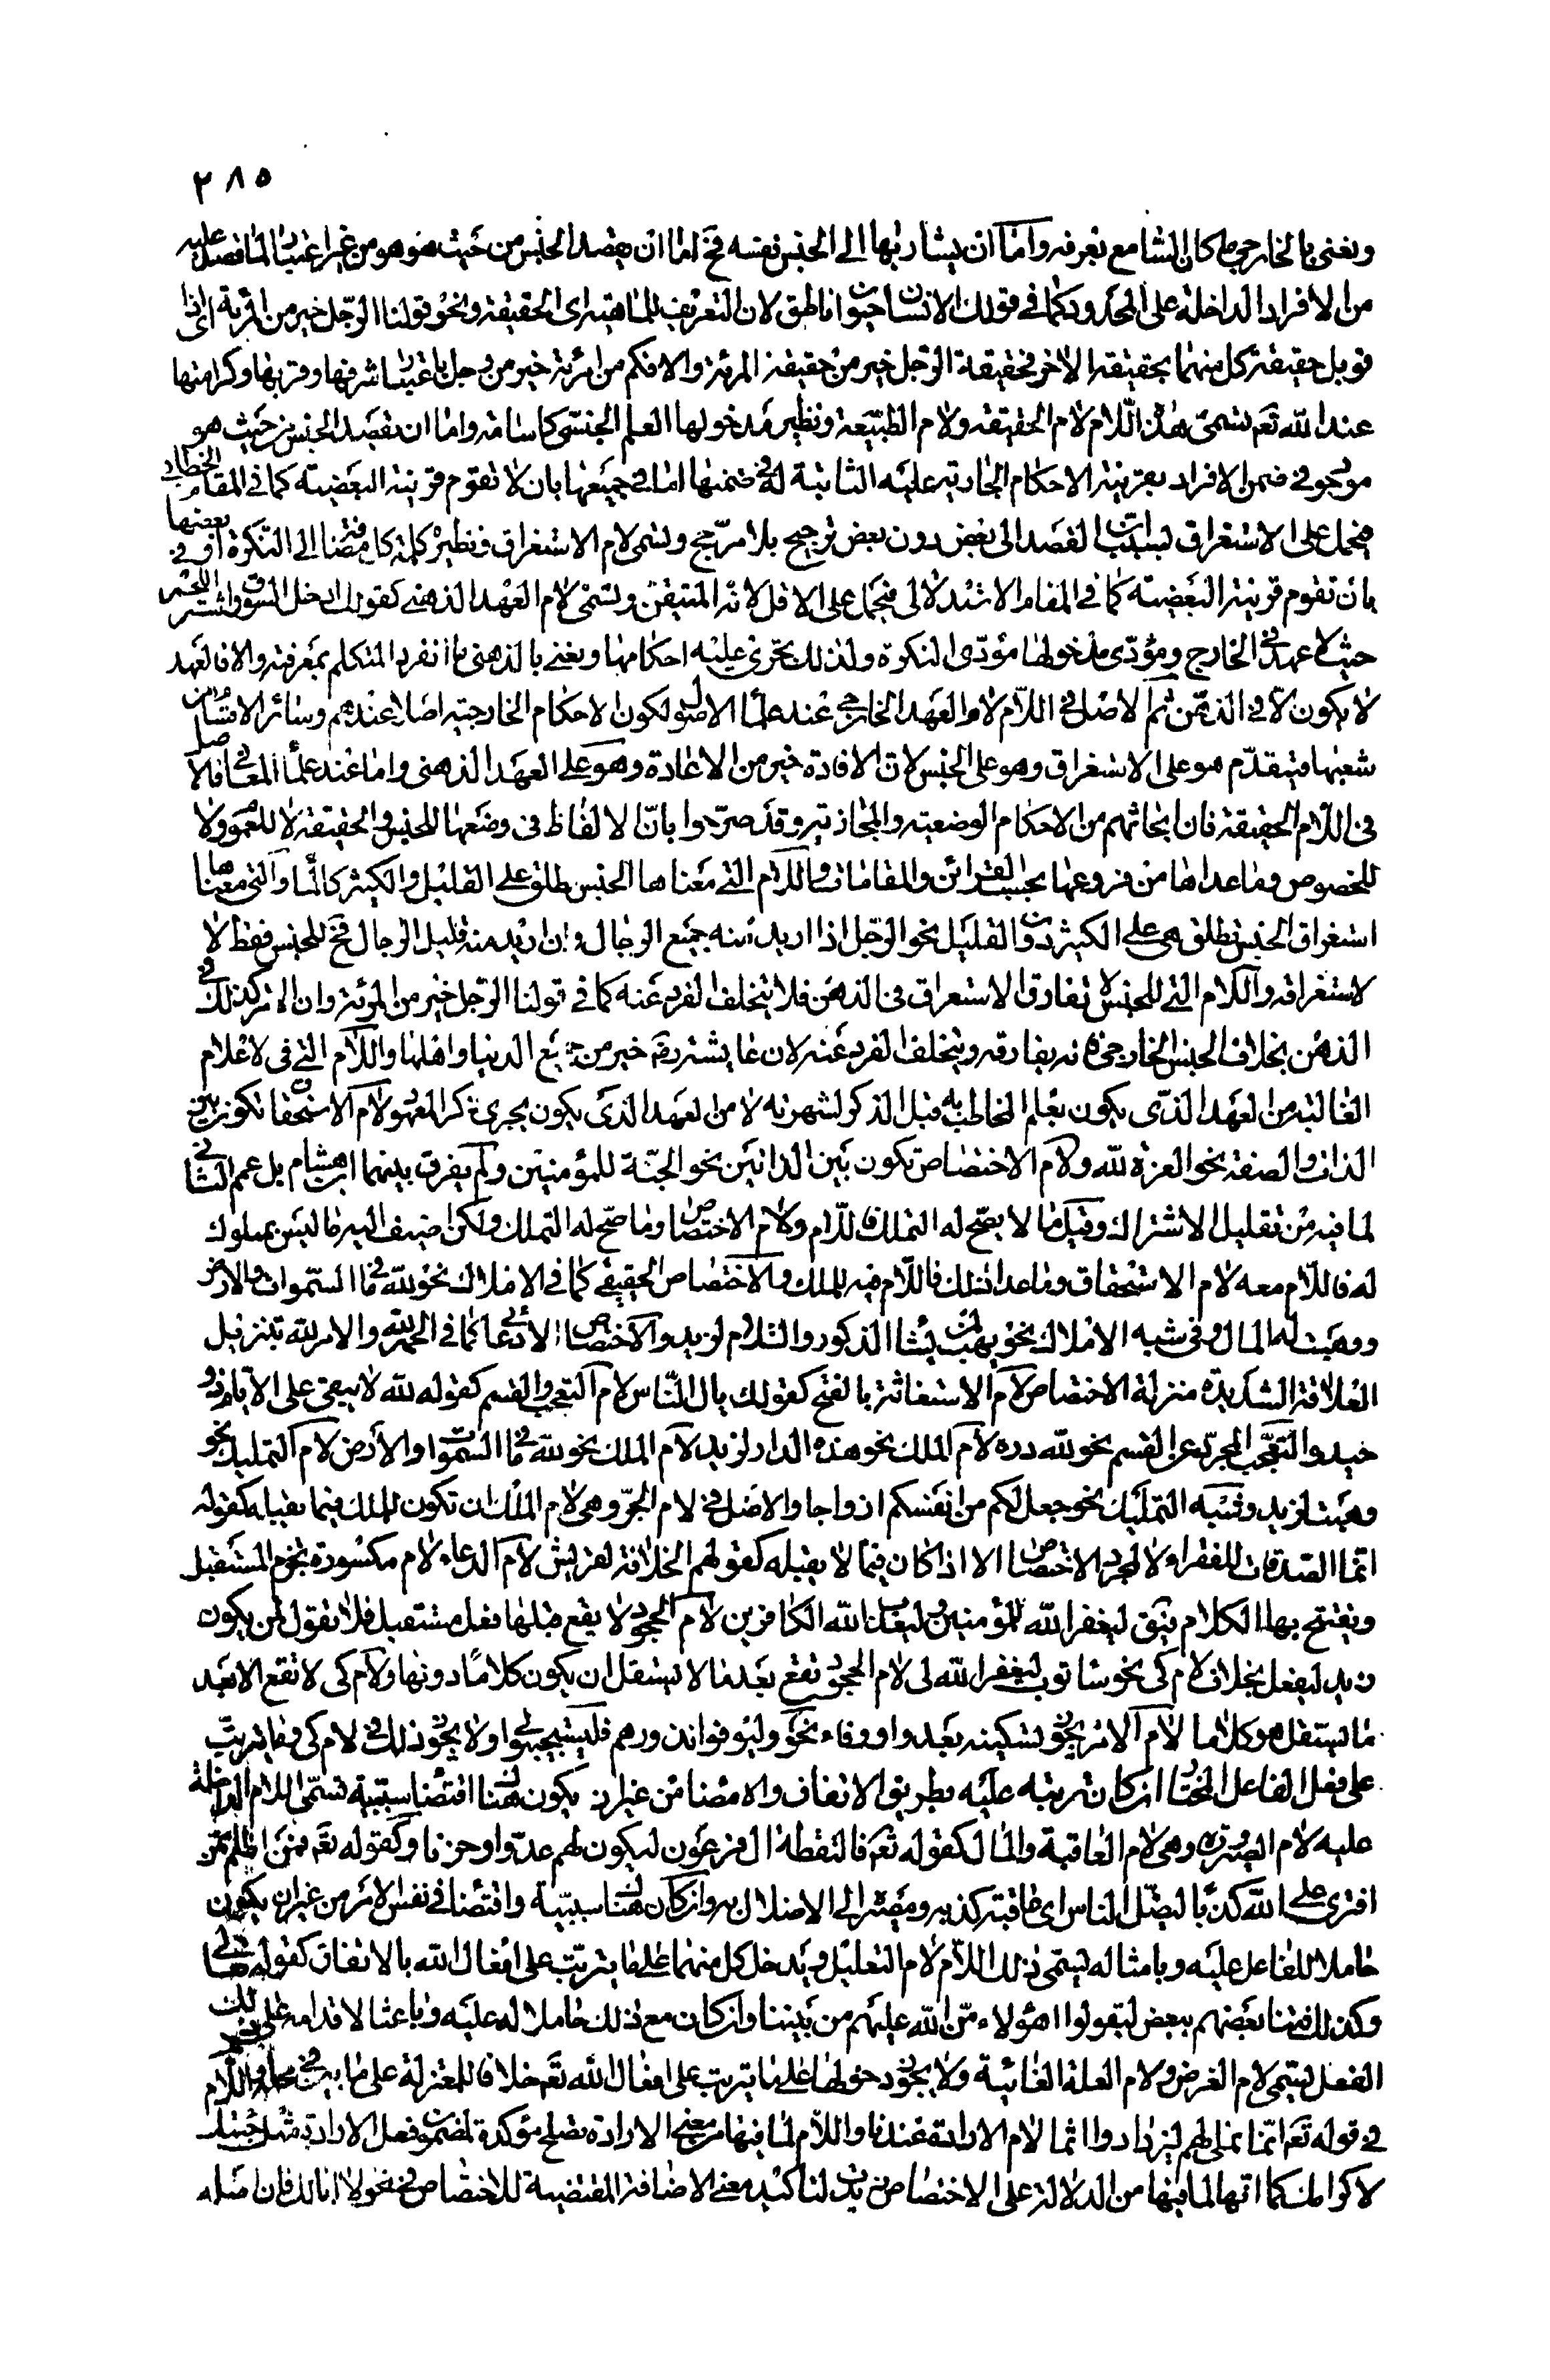 ٢٨٥
ونعنى بالخارجى ما كان السامع يعرفه واما ان يشار بها الى الجنس نفسه فح اما ان يقصد الجنس من حيث هو هو من غير اعتبار لما صدق عليه
من الافراد الداخلة على المحدود كما فى قولك الانسان حيوان ناطق لان التعريف للماهية اى الحقيقة ونحو قولنا الرجل خير من المرئة اى اذا
قوبل حقيقة كل منهما بحقيقة الاخر فحقيقة الرجل خير من حقيقة المرئة والا فكم من امرئة خير من رجل باعتبار شرفها وقربها وكرامتها
عند الله تعم تسمى هذه اللام لام الحقيقة ولام الطبيعة ونظير مدخولها العلم الجنسى كاسامة واما ان يقصد الجنس من حيث هو
موجود فى ضمن الافراد بقرينة الاحكام الجارية عليه الثابتة له فى ضمنها اما فى جميعها بان لا تقوم قرينة البعضية كما فى المقام الخطابى
فيحمل على الاستغراق لبيان ان القصد الى بعض دون بعض ترجيح بلا مرجح وتسمى لام الاستغراق ونظيره كلمة كل مضافة الى النكرة او فى بعضها
بان تقوم قرينة البعضية كما فى المقام الاستدلالى فيحمل على الاقل لانه المتيقن وتسمى لام العهد الذهنى كقولك ادخل السوق واشتر اللحم
حيث لا عهد فى الخارج ومؤدى مدخولها مؤدى النكرة ولذلك تجرى عليه احكامها ونعنى بالذهنى ما انفرد المتكلم بمعرفته والا فالعهد
لا يكون الا فى الذهن ثم الاصل فى اللام لام العهد الخارجى عند علماء الاصول لكون الاحكام الخارجية اصلا عندهم وسائر الاقسام من
شعبها فيتقدم هو على الاستغراق وهو على الجنس لان الافادة خير من الاعادة وهو على العهد الذهنى واما عند علماء المعانى فالاصل
فى اللام الحقيقة فان ابحاثهم من الاحكام الوضعية والمجازية وقد صرحوا بان الالفاظ فى وضعها للجنس والحقيقة لا للعموم ولا
للخصوص وما عداها من فروعها بحسب القرائن والمقامات واللام التى معناها الجنس يطلق على القليل والكثير كالماء والتى معناها
استغراق الجنس تطلق هى على الكثير دون القليل نحو الرجل اذا اريد منه جميع الرجال وان اريد منه قليل الرجال فح للجنس فقط لا
لاستغراقه واللام التى للجنس لا تفارق الاستغراق فى الذهن فلا يتخلف الفرد عنه كما فى قولنا الرجل خير من المرئة وان الامر كذلك فى
الذهن بخلاف الجنس الخارجى فانه يفارقه ويتخلف الفرد عنه لان عايشة رقية خير من جميع الدنيا واهلها واللام التى فى الاعلام
الغالبة من العهد الذى يكون بعلم المخاطب به قبل الذكر لشهرته لا من العهد الذى يكون بجرى ذكر المعهود ولام الاستحقاق تكون بين
الذات والصفة نحو العزة لله ولام الاختصاص تكون بين الذاتين نحو الجنة للمؤمنين ولم يفرق بينهما ابن هشام بل عمم الثانى
لما فيه من تقليل الاشتراك وقيل ما لا يصح له التملك فاللام ولام الاختصاص وما صح له التملك ولكن اضيف اليه ما ليس بمملوك
له فاللام معه لام الاستحقاق وما عدا ذلك فاللام فيه للملك والاختصاص الحقيقى كما فى الاملاك نحو لله ما فى السموات والارض
ووهبت له المال وفى شبه الاملاك نحو يهب لمن يشاء الذكور والسلام لزيد والاختصاص الادعائى كما فى الحمد لله والامر لله بتنزيل
العلاقة الشديدة منزلة الاختصاص لام الاستغاثة بالفتح كقولك يال للناس لام التعجب والقسم كقوله لله لا يبقى على الايام ذو
حيد والتعجب المجرد عن القسم نحو لله دره لام الملك نحو هذه الدار لزيد لام الملك نحو لله ما فى السموات والارض لام التمليك نحو
وهبت لزيد وشبه التمليك نحو جعل لكم من انفسكم ازواجا والاصل فى لام الجر وهى لام الملك ان تكون للملك فيما يقبله كقوله
انما الصدقات للفقراء ولا لمجرد الاختصاص الا اذا كان فيما لا يقبله كقولهم الخلافة لقريش لام الدعاء لام مكسورة تجزم المستقبل
ويفتتح بها الكلام فيق ليغفر الله للمؤمنين وليعذب الله الكافرين لام الجحود لا يقع قبلها فعل مستقبل فلا تقول لن يكون
زيد ليفعل بخلاف لام كى نحو ساتوب ليغفر الله لى لام الجحود تقع بعد ما لا يستقل ان يكون كلاما دونها ولام كى لا تقع الا بعد
ما يستقل هو كلاما لام الامر يجوز تسكينه بعد واو وفاء نحو وليوفوا نذورهم فليستجيبوا ولا يجوز ذلك فى لام كى وما يترتب
على فعل الفاعل المختار ان كان ترتبه عليه بطريق الاتفاق والامضاء من غير ان يكون هنا اقتضاء سببية تسمى اللام الداخلة
عليه لام الصيرورة وهى لام العاقبة والمال كقوله تعم فالتقطه ال فرعون ليكون لهم عدوا وحزنا وكقوله تعم فمن اظلم ممن
افترى على الله كذبا ليضل الناس اى عاقبة كذبه ومصيره الى الاضلال به وان كان هنا سببية واقتضاء فى نفس الامر من غير ان يكون
حاملا للفاعل عليه وبامثاله تسمى ذلك اللام لام التعليل ويدخل كل منهما على ما يترتب على افعال الله بالاتفاق كقوله تعالى
وكذلك فتنا بعضهم ببعض ليقولوا اهؤلاء من الله عليهم من بيننا وان كان مع ذلك حاملا له عليه وباعثا لاقدامه على ذلك
الفعل تسمى لام الغرض ولام العلة الغائية ولا يجوز دخولها على ما يترتب على افعال الله تعم خلافا للمعتزلة على ما بين فى محله واللام
فى قوله تعم انما نملى لهم ليزدادوا اثما لام الارادة عندنا واللام لما فيها من معنى الارادة تصلح مؤكدة لمضمون فعل الارادة مثل جئتك
لاكرامك كما انها لما فيها من الدلالة على الاختصاص زيدت لتاكيد معنى الاضافة المقتضية للاختصاص فى نحو لا ابا لك فان اصله